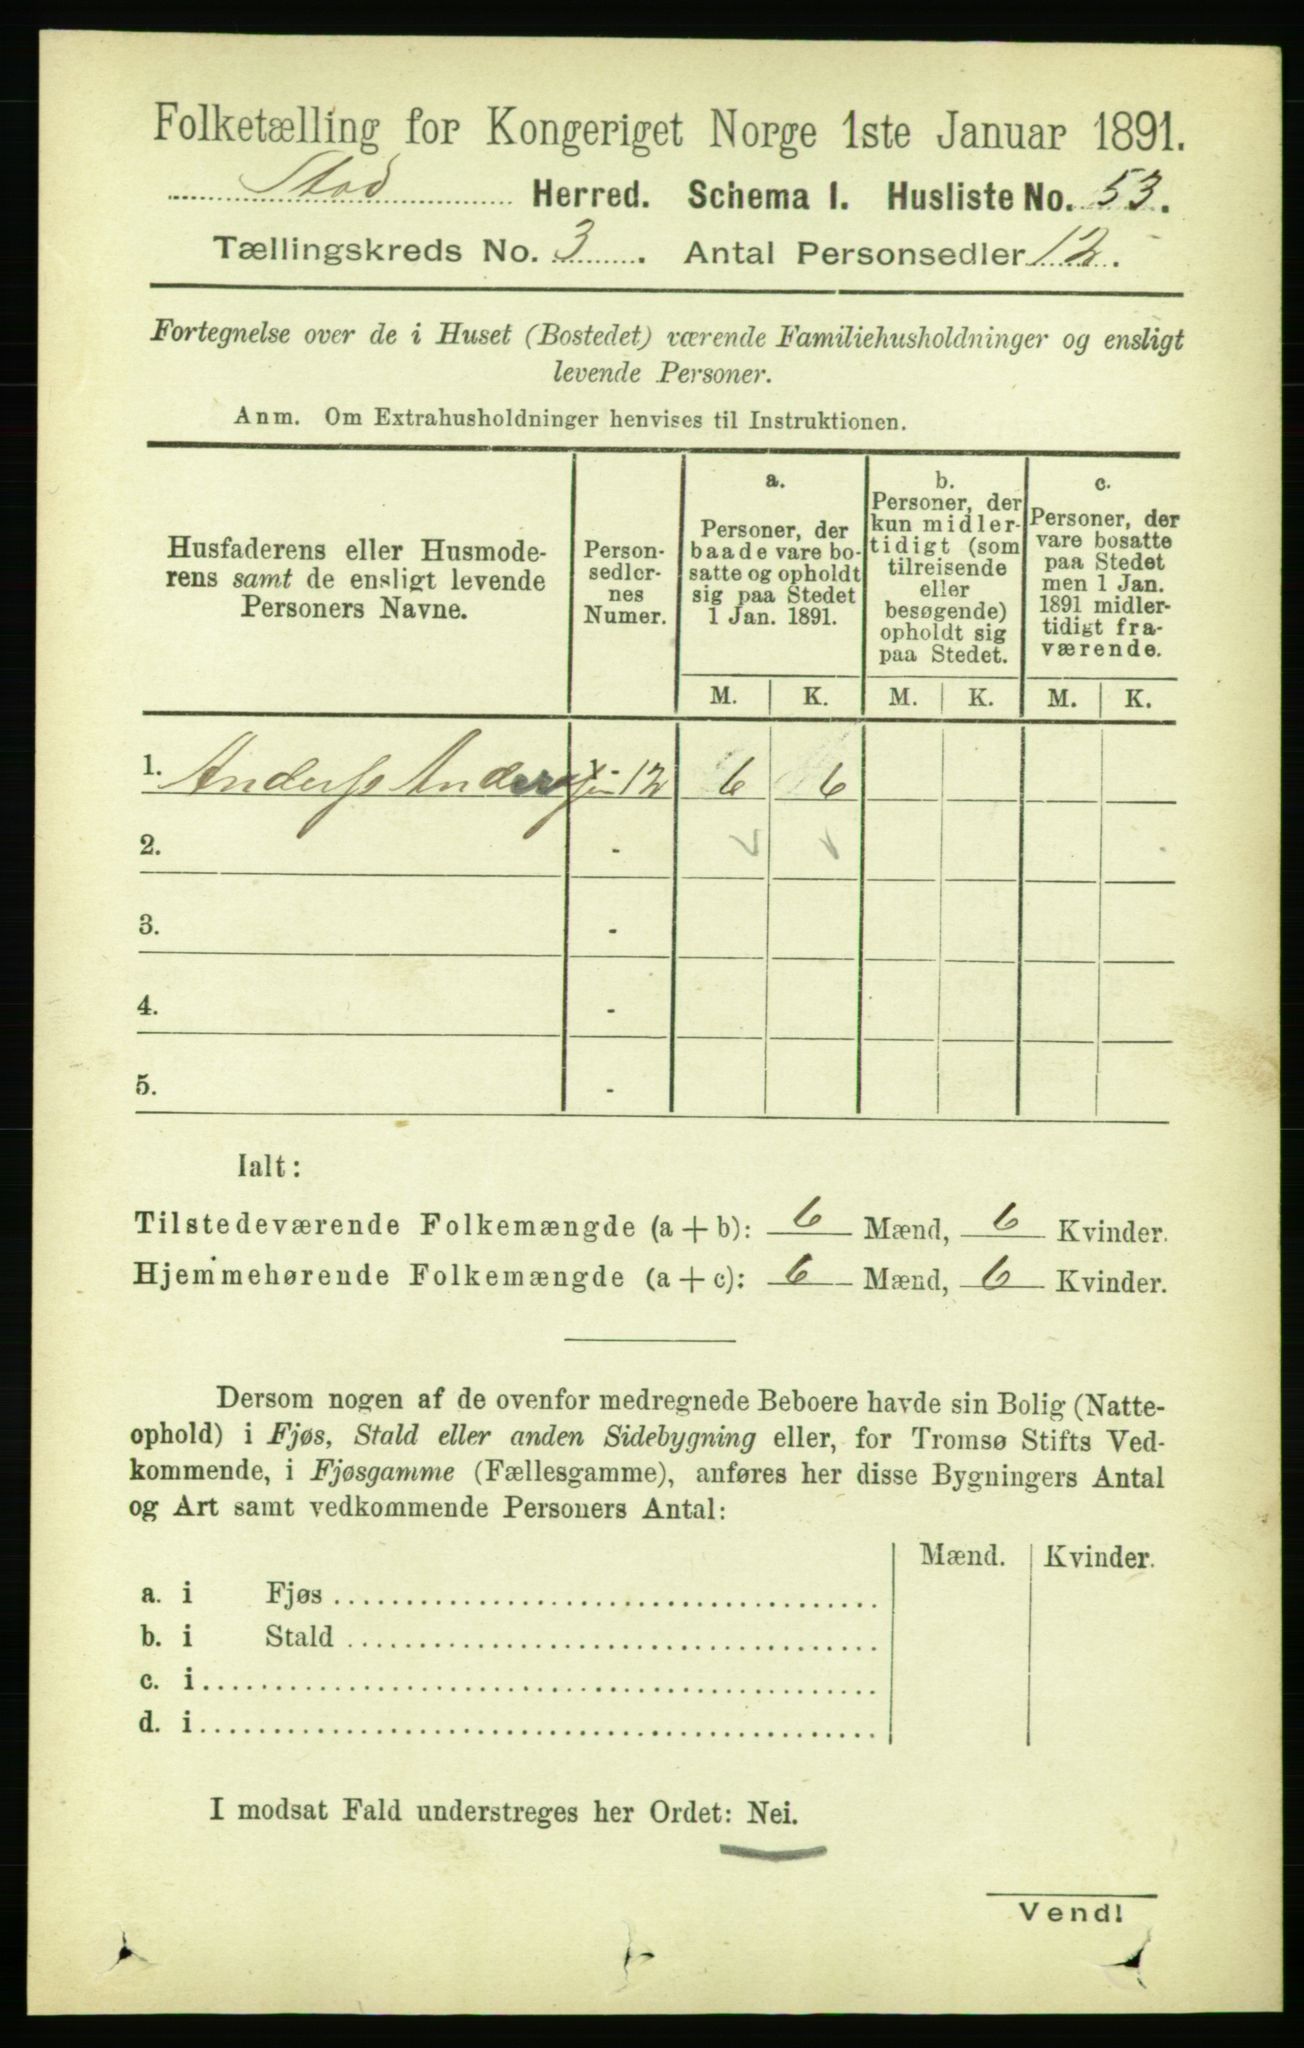 Folketælling for Kongeriget Norge 1ste Januar 1891.
Stod Herred. Schema 1. Husliste No. 53.
Tællingskreds No. 3. Antal Personsedler 12.
Fortegnelse over de i Huset (Bostedet) værende Familiehusholdninger og ensligt
levende Personer.
Anm. Om Extrahusholdninger henvises til Instruktionen.
Husfaderens eller Husmode-
rens samt de ensligt levende
Personers Navne.
Person-
sedler-
nes
Numer.
a.
Personer, der
baade vare bo-
satte og opholdt
sig paa Stedet
1 Jan. 1891.
b.
Personer, der
kun midler-
tidigt (som
tilreisende
eller
besøgende)
opholdt sig
paa Stedet.
c.
Personer, der
vare bosatte
paa Stedet
men 1 Jan.
1891 midler-
tidigt fra-
værende.
M. K. M. K. M. K.
1. 1 - 12 6 6
2. -
3. -
4. -
5. -
Ialt:
Tilstedeværende Folkemængde (a + b): 6 Mænd, 6 Kvinder.
Hjemmehørende Folkemængde (a + c): 6 Mænd, 6 Kvinder.
Dersom nogen af de ovenfor medregnede Beboere havde sin Bolig (Natte-
ophold) i Fjøs, Stald eller anden Sidebygning eller, for Tromsø Stifts Ved-
kommende, i Fjøsgamme (Fællesgamme), anføres her disse Bygningers Antal
og Art samt vedkommende Personers Antal:
Mænd. Kvinder.
a. i Fjøs
b. i Stald
c. i
d. i
I modsat Fald understreges her Ordet: Nei.
Vend!